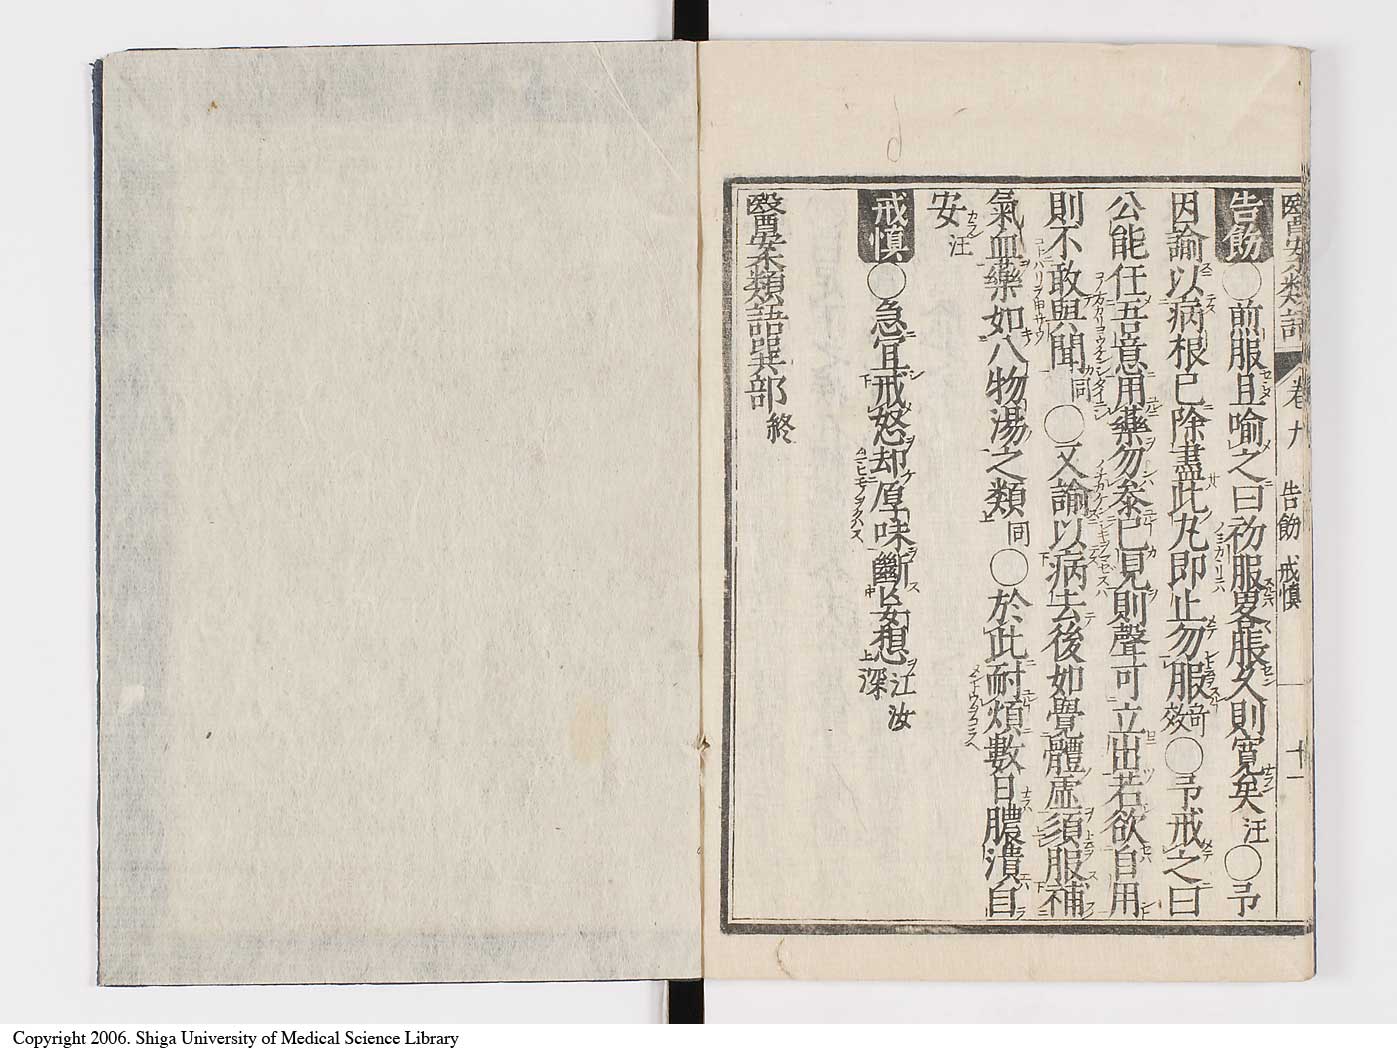 醫案類語 卷九 告飭 戒慎 十一
告飭 ○煎服且喻之曰初服畧脹久則寬矣 汪 ○予
因諭以病根已除盡此丸即止勿服 奇効 ○予戒之曰
公能任吾意用藥勿參已見則聲可立出若欲自用
則不敢與聞 同 ○又諭以病去後如覺體虛須服補
氣血藥如八物湯之類 同 ○於此耐煩數日膿潰自
安 汪
戒慎 ○急宜戒怒却厚味斷妄想 江汝深
醫案類語巽部 終
Copyright 2006. Shiga University of Medical Science Library